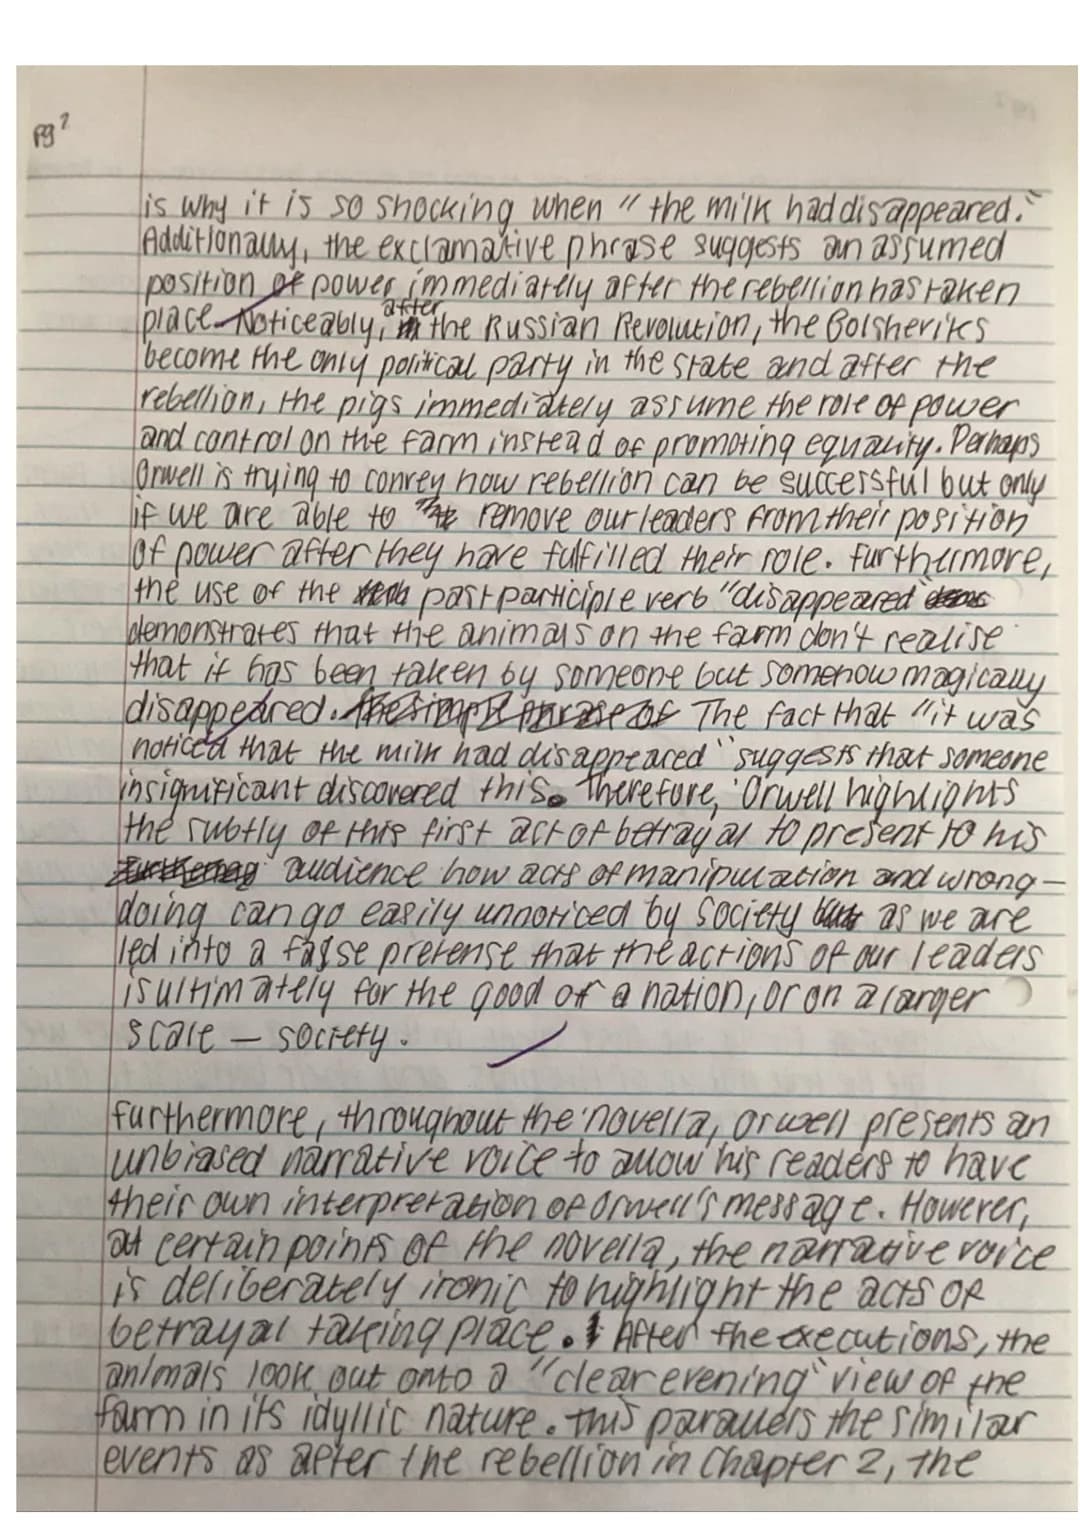 pg 2
is why it is so shocking when "the milk had disappeared."
Additionally, the exclamative phrase suggests an assumed
position of power immediately after the rebellion has taken
place. Noticeably, after the Russian Revolution, the Bolsheviks
become the only political party in the state and after the
rebellion, the pigs immediately assume the role of power
and control on the farm instead of promoting equality. Perhaps
Orwell is trying to convey how rebellion can be successful but only
if we are able to remove our leaders from their position
of power after they have fulfilled their role. Furthermore,
the use of the past participle verb "disappeared"
demonstrates that the animals on the farm don't realise
that it has been taken by someone but somehow magically
disappeared. The simple phrase of The fact that "it was
noticed that the milk had disappeared" suggests that someone
insignificant discovered this. Therefore, Orwell highlights
the subtly of this first act of betrayal to present to his
audience how acts of manipulation and wrong-
doing can go easily unnoticed by society as we are
led into a false pretense that the actions of our leaders
is ultimately for the good of a nation, or on a larger
scale – society.
Furthermore, throughout the novella, Orwell presents an
unbiased narrative voice to allow his readers to have
their own interpretation of Orwell's message. However,
at certain points of the novella, the narrative voice
is deliberately ironic to highlight the acts of
betrayal taking place. After the executions, the
animals look out onto a "clear evening" view of the
farm in its idyllic nature. This parallels the similar
events as after the rebellion in Chapter 2, the